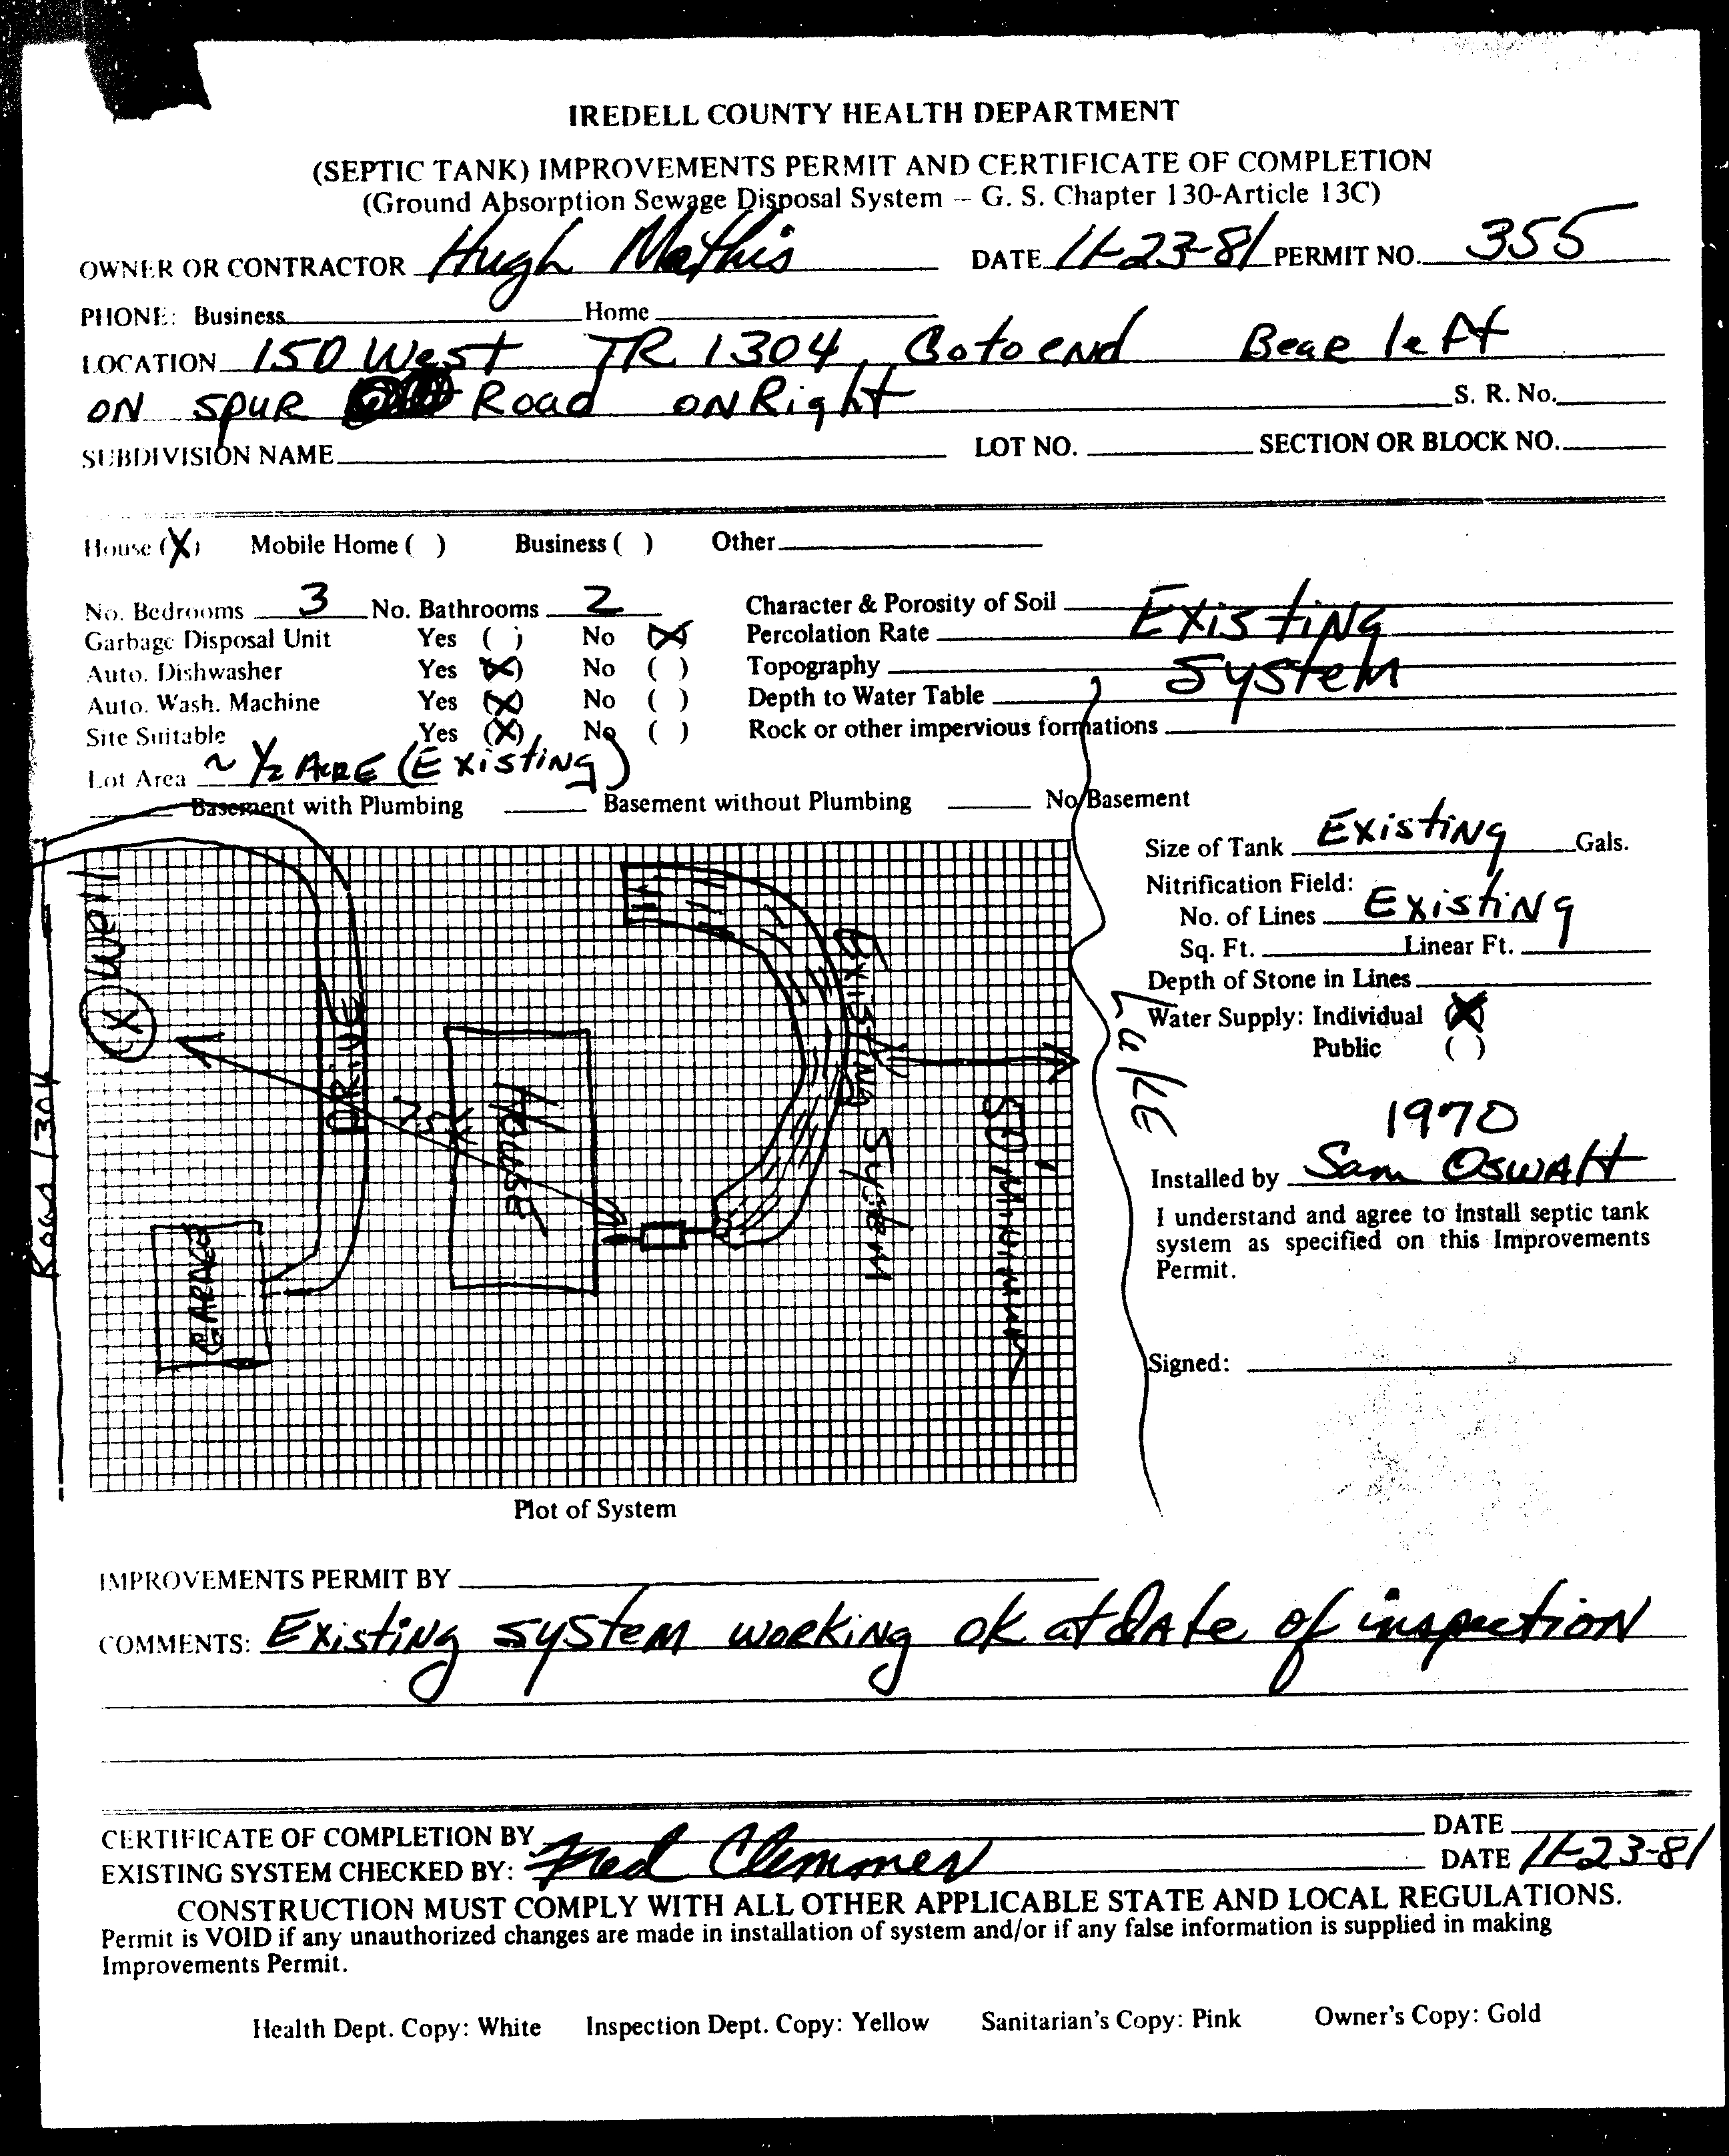 IREDELL COUNTY HEALTH DEPARTMENT
(SEPTIC TANK) IMPROVEMENTS PERMIT AND CERTIFICATE OF COMPLETION
(Ground Absorption Sewage Disposal System -- G. S. Chapter 130-Article 13C)
OWNER OR CONTRACTOR Hugh Mathis DATE 11-23-81 PERMIT NO. 355
PHONE: Business Home
LOCATION 150 West TR 1304 Go to end Bear left
ON SPUR Road ON Right S. R. No.
SUBDIVISION NAME LOT NO. SECTION OR BLOCK NO.
House (X) Mobile Home ( ) Business ( ) Other
No. Bedrooms 3 No. Bathrooms 2 Character & Porosity of Soil Existing
Garbage Disposal Unit Yes ( ) No (X) Percolation Rate
Auto. Dishwasher Yes (X) No ( ) Topography System
Auto. Wash. Machine Yes (X) No ( ) Depth to Water Table
Site Suitable Yes (X) No ( ) Rock or other impervious formations
Lot Area ~ 1/2 ACRE (Existing)
Basement with Plumbing Basement without Plumbing No Basement
Size of Tank Existing Gals.
Nitrification Field:
No. of Lines Existing
Sq. Ft. Linear Ft.
Depth of Stone in Lines
Water Supply: Individual (X)
Public ( )
1970
Installed by Sam Oswalt
I understand and agree to install septic tank
system as specified on this Improvements
Permit.
Signed:
Road 1304
Well
X
DRIVE
GARAGE
House
75'
Existing System
50' Minimum
Lake
Plot of System
IMPROVEMENTS PERMIT BY
COMMENTS: Existing system working ok at date of inspection
CERTIFICATE OF COMPLETION BY DATE
EXISTING SYSTEM CHECKED BY: Fred Clemmer DATE 11-23-81
CONSTRUCTION MUST COMPLY WITH ALL OTHER APPLICABLE STATE AND LOCAL REGULATIONS.
Permit is VOID if any unauthorized changes are made in installation of system and/or if any false information is supplied in making
Improvements Permit.
Health Dept. Copy: White Inspection Dept. Copy: Yellow Sanitarian's Copy: Pink Owner's Copy: Gold